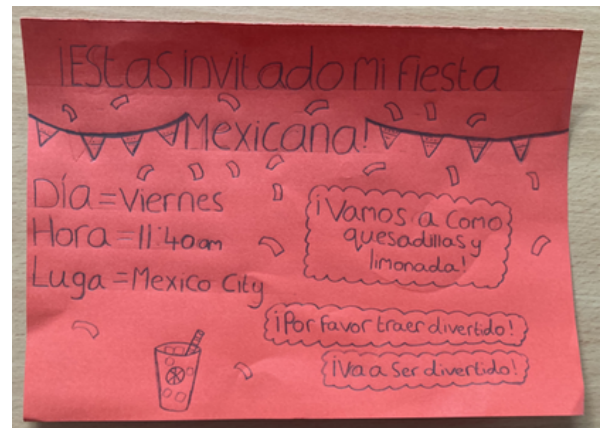 ¡EStas Invitado mi fiesta
Mexicana!
Día=Viernes
Hora=11:40am
Luga=Mexico City
¡Vamos a Como
quesadillas y
limonada!
¡Por favor traer divertido!
¡Va a Ser divertido!